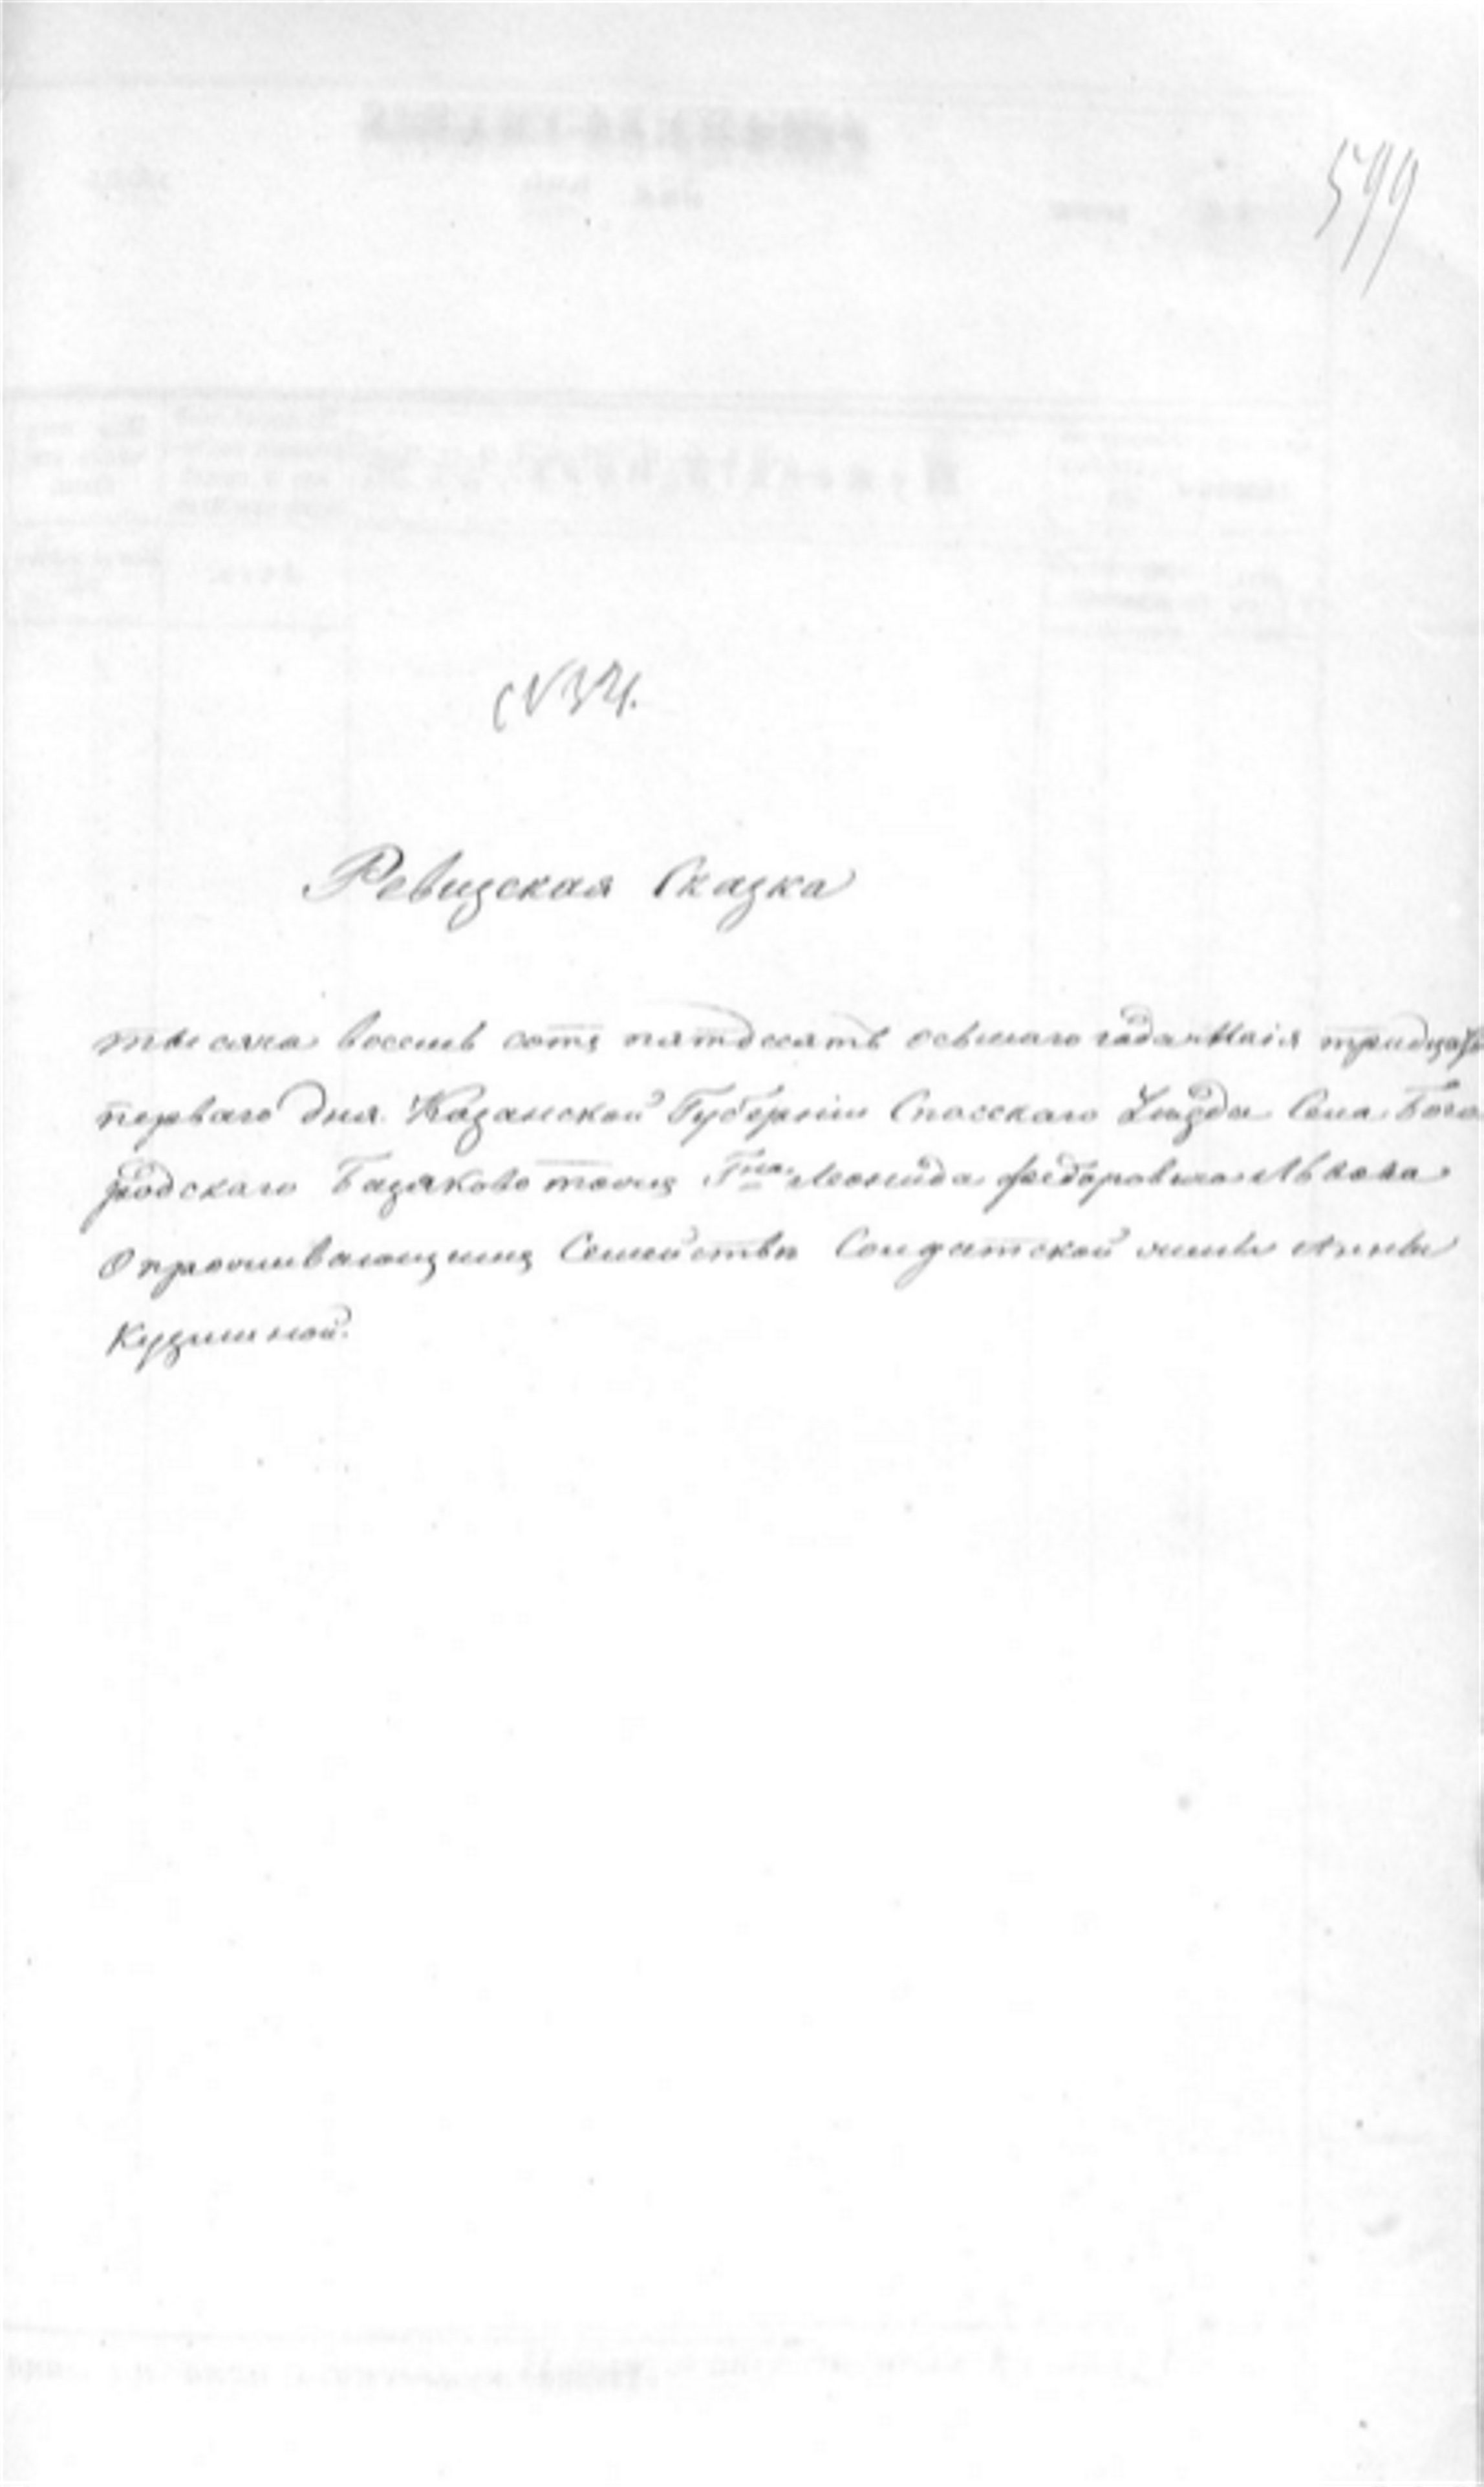 599
№ 34.
Ревизская Сказка
тысяча восемь сотъ пятдесятъ осьмаго года Маія тридцать
перваго дня Казанской Губерніи Спасскаго Уѣзда Села Бого
родскаго Базяково тожъ Гна Леонида Федоровича Львова
О проживающимъ Семействѣ Солдатской жены Анны
Кузминой.